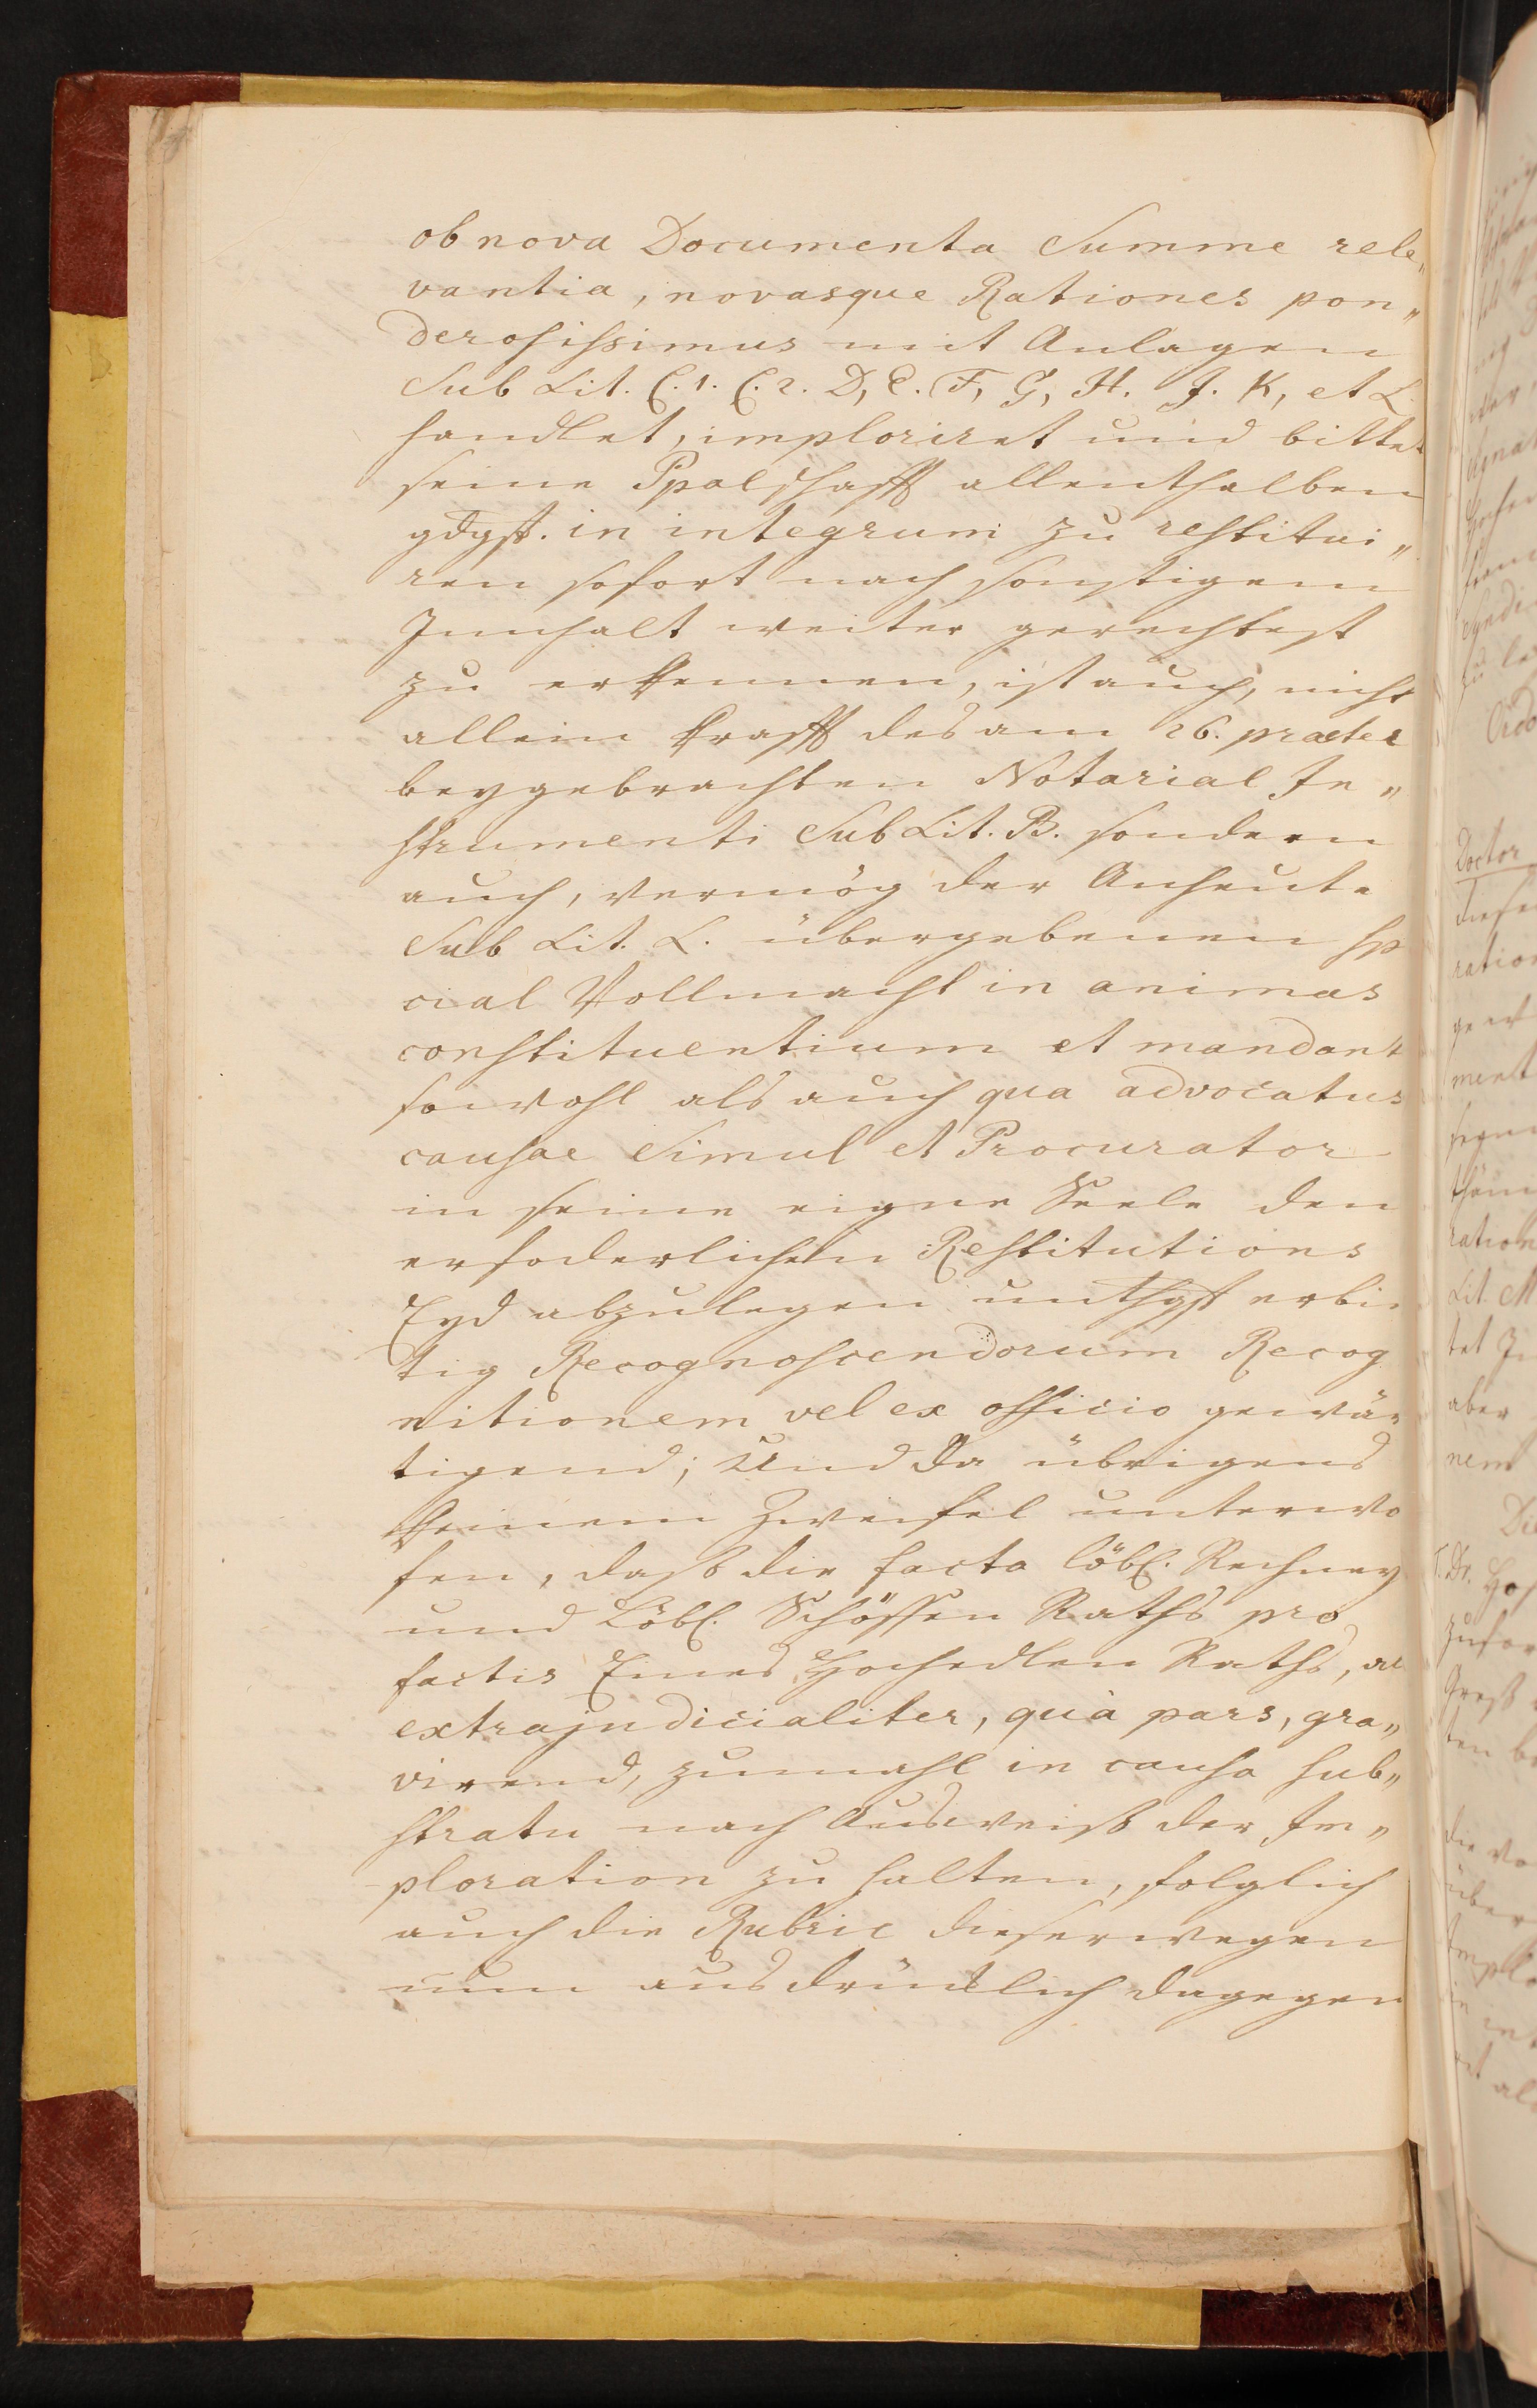 ob nova Documenta Summe rele„
vantia, novasque Rationes pon„
derosissimus mit Anlagen
Sub Lit. C. 1. C. 2. D, E. F, G, H. J. K, et L.
handlet, imploriret und bittet
seine Ppalschafft allenthalben
gdgst. in integrum zu restitui„
ren sofort nach sonstigem
Innhalt weiter gerechtest
zu erkennen, ist auch, nicht
allein krafft des am 26. præter
beygebrachten Notarial In„
strumenti Sub Lit. B. sondern
auch, vermög der Anheute
Sub Lit. L. übergebenen Sp
cial Vollmacht in animas
constituentium et mandant
sowohl als auch qua advocatus
causae Simul et Procurator
in seine eigne Seele den
erfoderlichen Restitutions
Eyd abzulegen unthgst erbie
tig Recognoscendorum Recog
nitionem vel ex officio gewär
tigend; Und da übrigens
keinem Zweifel unterwo
fen, daß die facta löbl. Rechney
und Löbl. Schöffen Raths pro
factis Eines Hochedlen Raths, al
extrajudicialiter, quà pars, gra„
virend, zumahl in causa sub„
strata nach Ausweiß der Im„
ploration zu halten, folglich
auch die Rubric dieserwegen
nun ausdrücklich dagegen